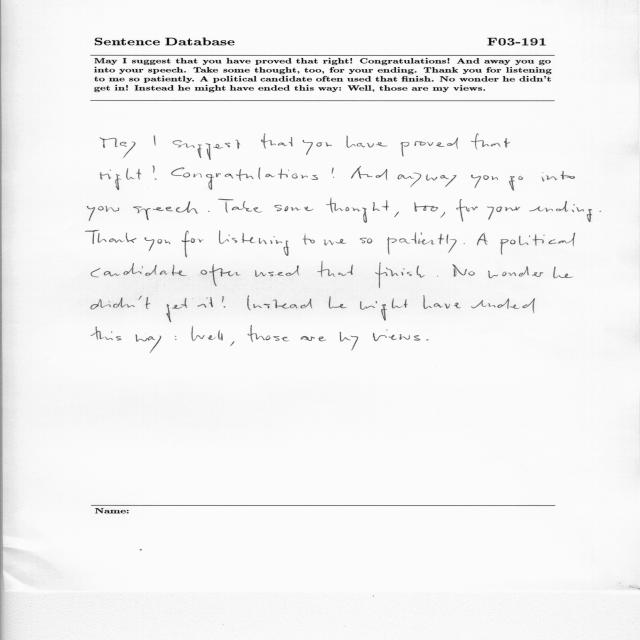 Sentence Database F03-191
May I suggest that you have proved that right! Congratulations! And away you go
into your speech. Take some thought, too, for your ending. Thank you for listening
to me so patiently. A political candidate often used that finish. No wonder he didn't
get in! Instead he might have ended this way: Well, those are my views.
May I suggest that you have proved that
right! Congratulations! And anyway you go into
your speech. Take some thought, too, for your ending.
Thank you for listening to me so patiently. A political
candidate often used that finish. No wonder he
didn't get it! Instead he might have ended
this way: Well, those are my views.
Name: